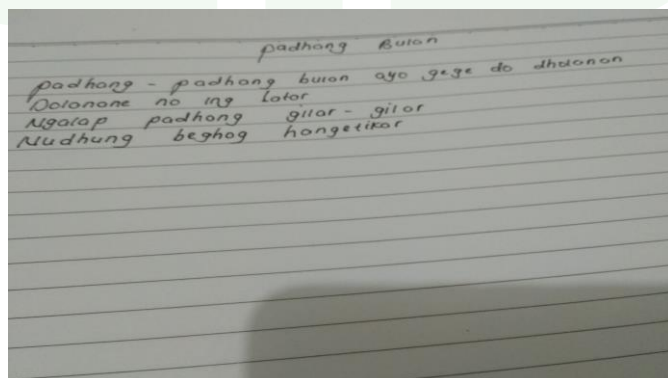 padhang Bulan
padhang - padhang bulan ayo gege do dholanan
Dolanane no ing lator
Ngalap padhang gilar - gilar
Nudhung beghog hangetikar